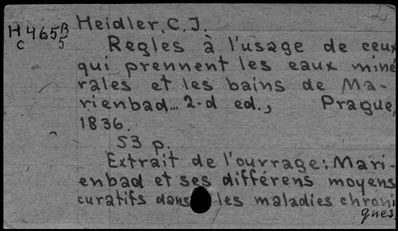 H465B Heidler, C. J.
C 5
Regles à l'usage de ceux
qui prennent les eaux miné
rales et les bains de Ma-
rienbad... 2-d ed., Prague,
1836.
53 p.
Extrait de l'ouvrage: Mari-
enbad et ses différens moyens
curatifs dans les maladies chroni
ques